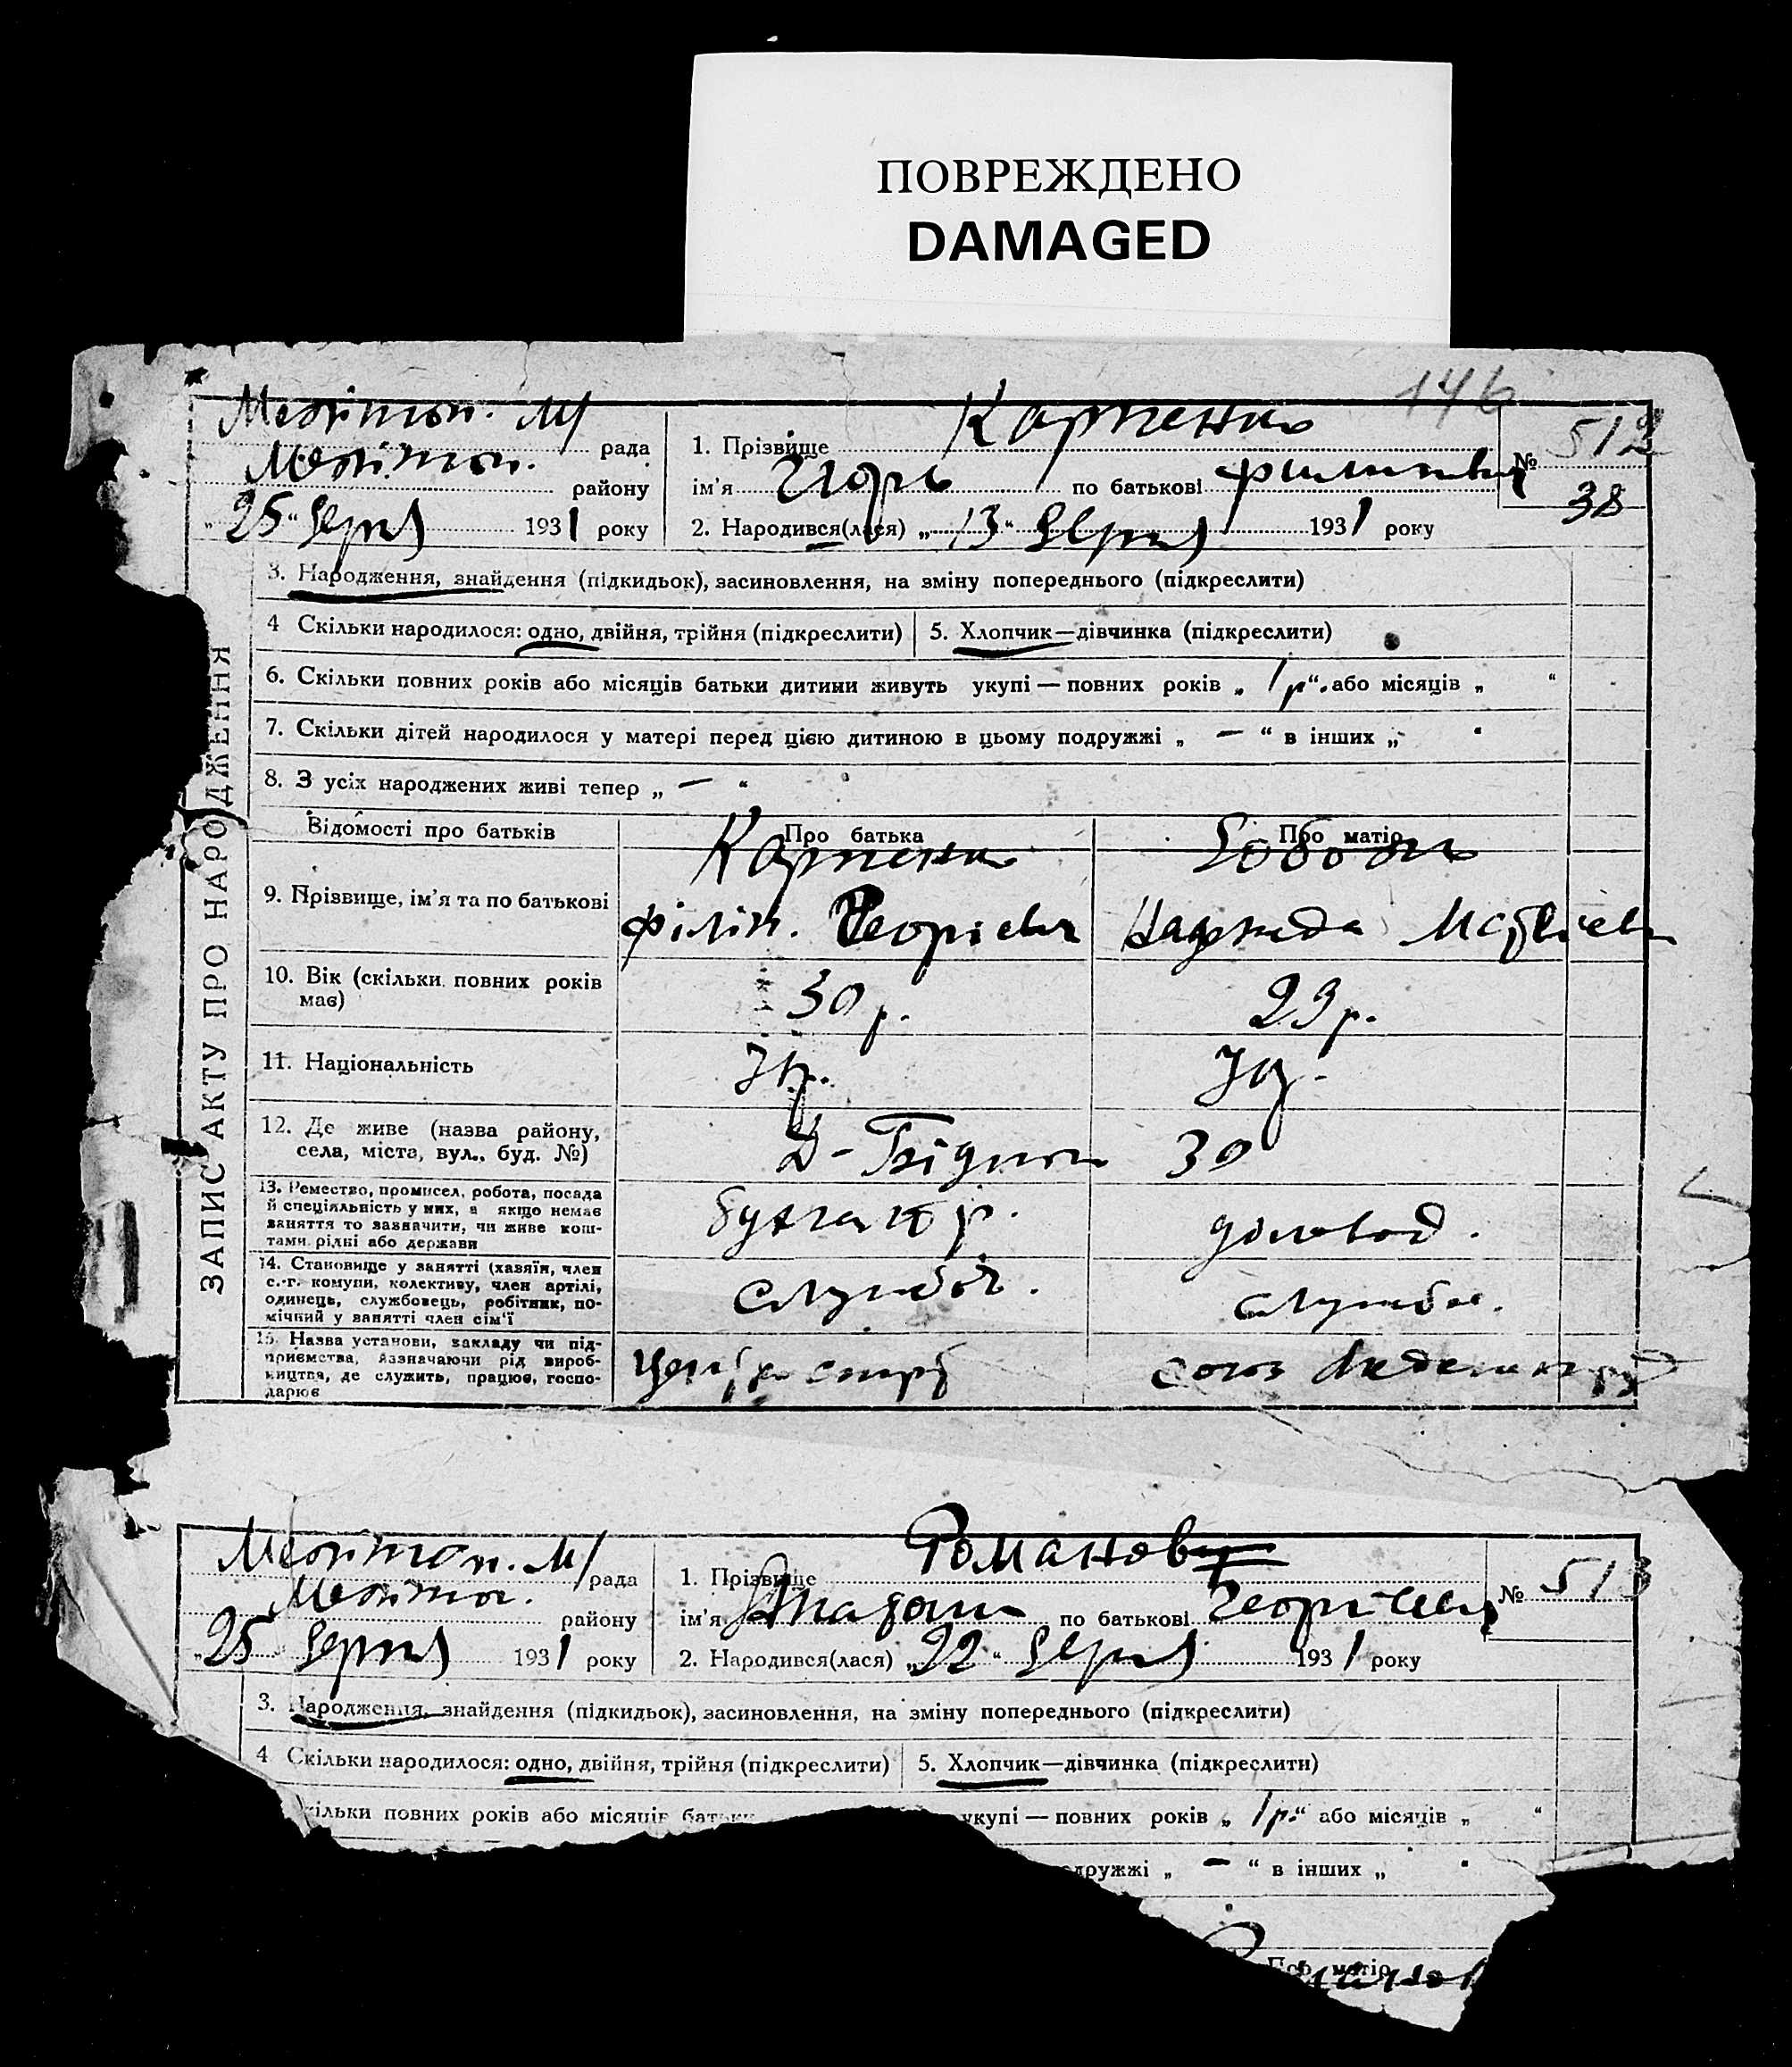 ПОВРЕЖДЕНО
DAMAGED
146
рада
району
„25“ Серпня 1931 року
1. Прізвище Карпенко
ім'я Ігорь по батькові Филипович
2. Народився(лася) „13“ Серпня 1931 року
№ 512
38
ЗАПИС АКТУ ПРО НАРОДЖЕННЯ
3. Народження, знайдення (підкидьок), засиновлення, на зміну попереднього (підкреслити)
4 Скільки народилося: одно, двійня, трійня (підкреслити)
5. Хлопчик—дівчинка (підкреслити)
6. Скільки повних років або місяців батьки дитини живуть укупі — повних років „ 1р“. або місяців „ “
7. Скільки дітей народилося у матері перед цією дитиною в цьому подружжі „ — “ в інших „ “
8. З усіх народжених живі тепер „ — “
Відомості про батьків
Про батька
Про матір
9. Прізвище, ім'я та по батькові
Карпенко
Філіп. Георгіевич
Надежда
10. Вік (скільки повних років
має)
30 р.
23 р.
11. Національність
12. Де живе (назва району,
села, міста, вул., буд. №)
30
13. Ремество, промисел, робота, посада
й спеціяльність у них, а якщо немає
заняття то зазначити, чи живе кош-
тами рідні або держави
14. Становище у занятті (хазяїн, член
с.-г. комуни, колективу, член артілі,
одинець, службовець, робітник, по-
мічний у занятті член сім'ї
службов.
службо.
15. Назва установи, закладу чи під-
приємства, зазначаючи рід вироб-
ництва, де служить, працює, госпо-
дарює
рада
району
„25“ Серпня 1931 року
1. Прізвище Романов
ім'я по батькові Георгіевич
2. Народився(лася) „22“ Серпня 1931 року
№ 513
3. Народження, знайдення (підкидьок), засиновлення, на зміну попереднього (підкреслити)
4 Скільки народилося: одно, двійня, трійня (підкреслити)
5. Хлопчик—дівчинка (підкреслити)
кільки повних років або місяців батьки укупі — повних років „ 1р.“ або місяців „ “
дружжі „ — “ в інших „ “
Про матір